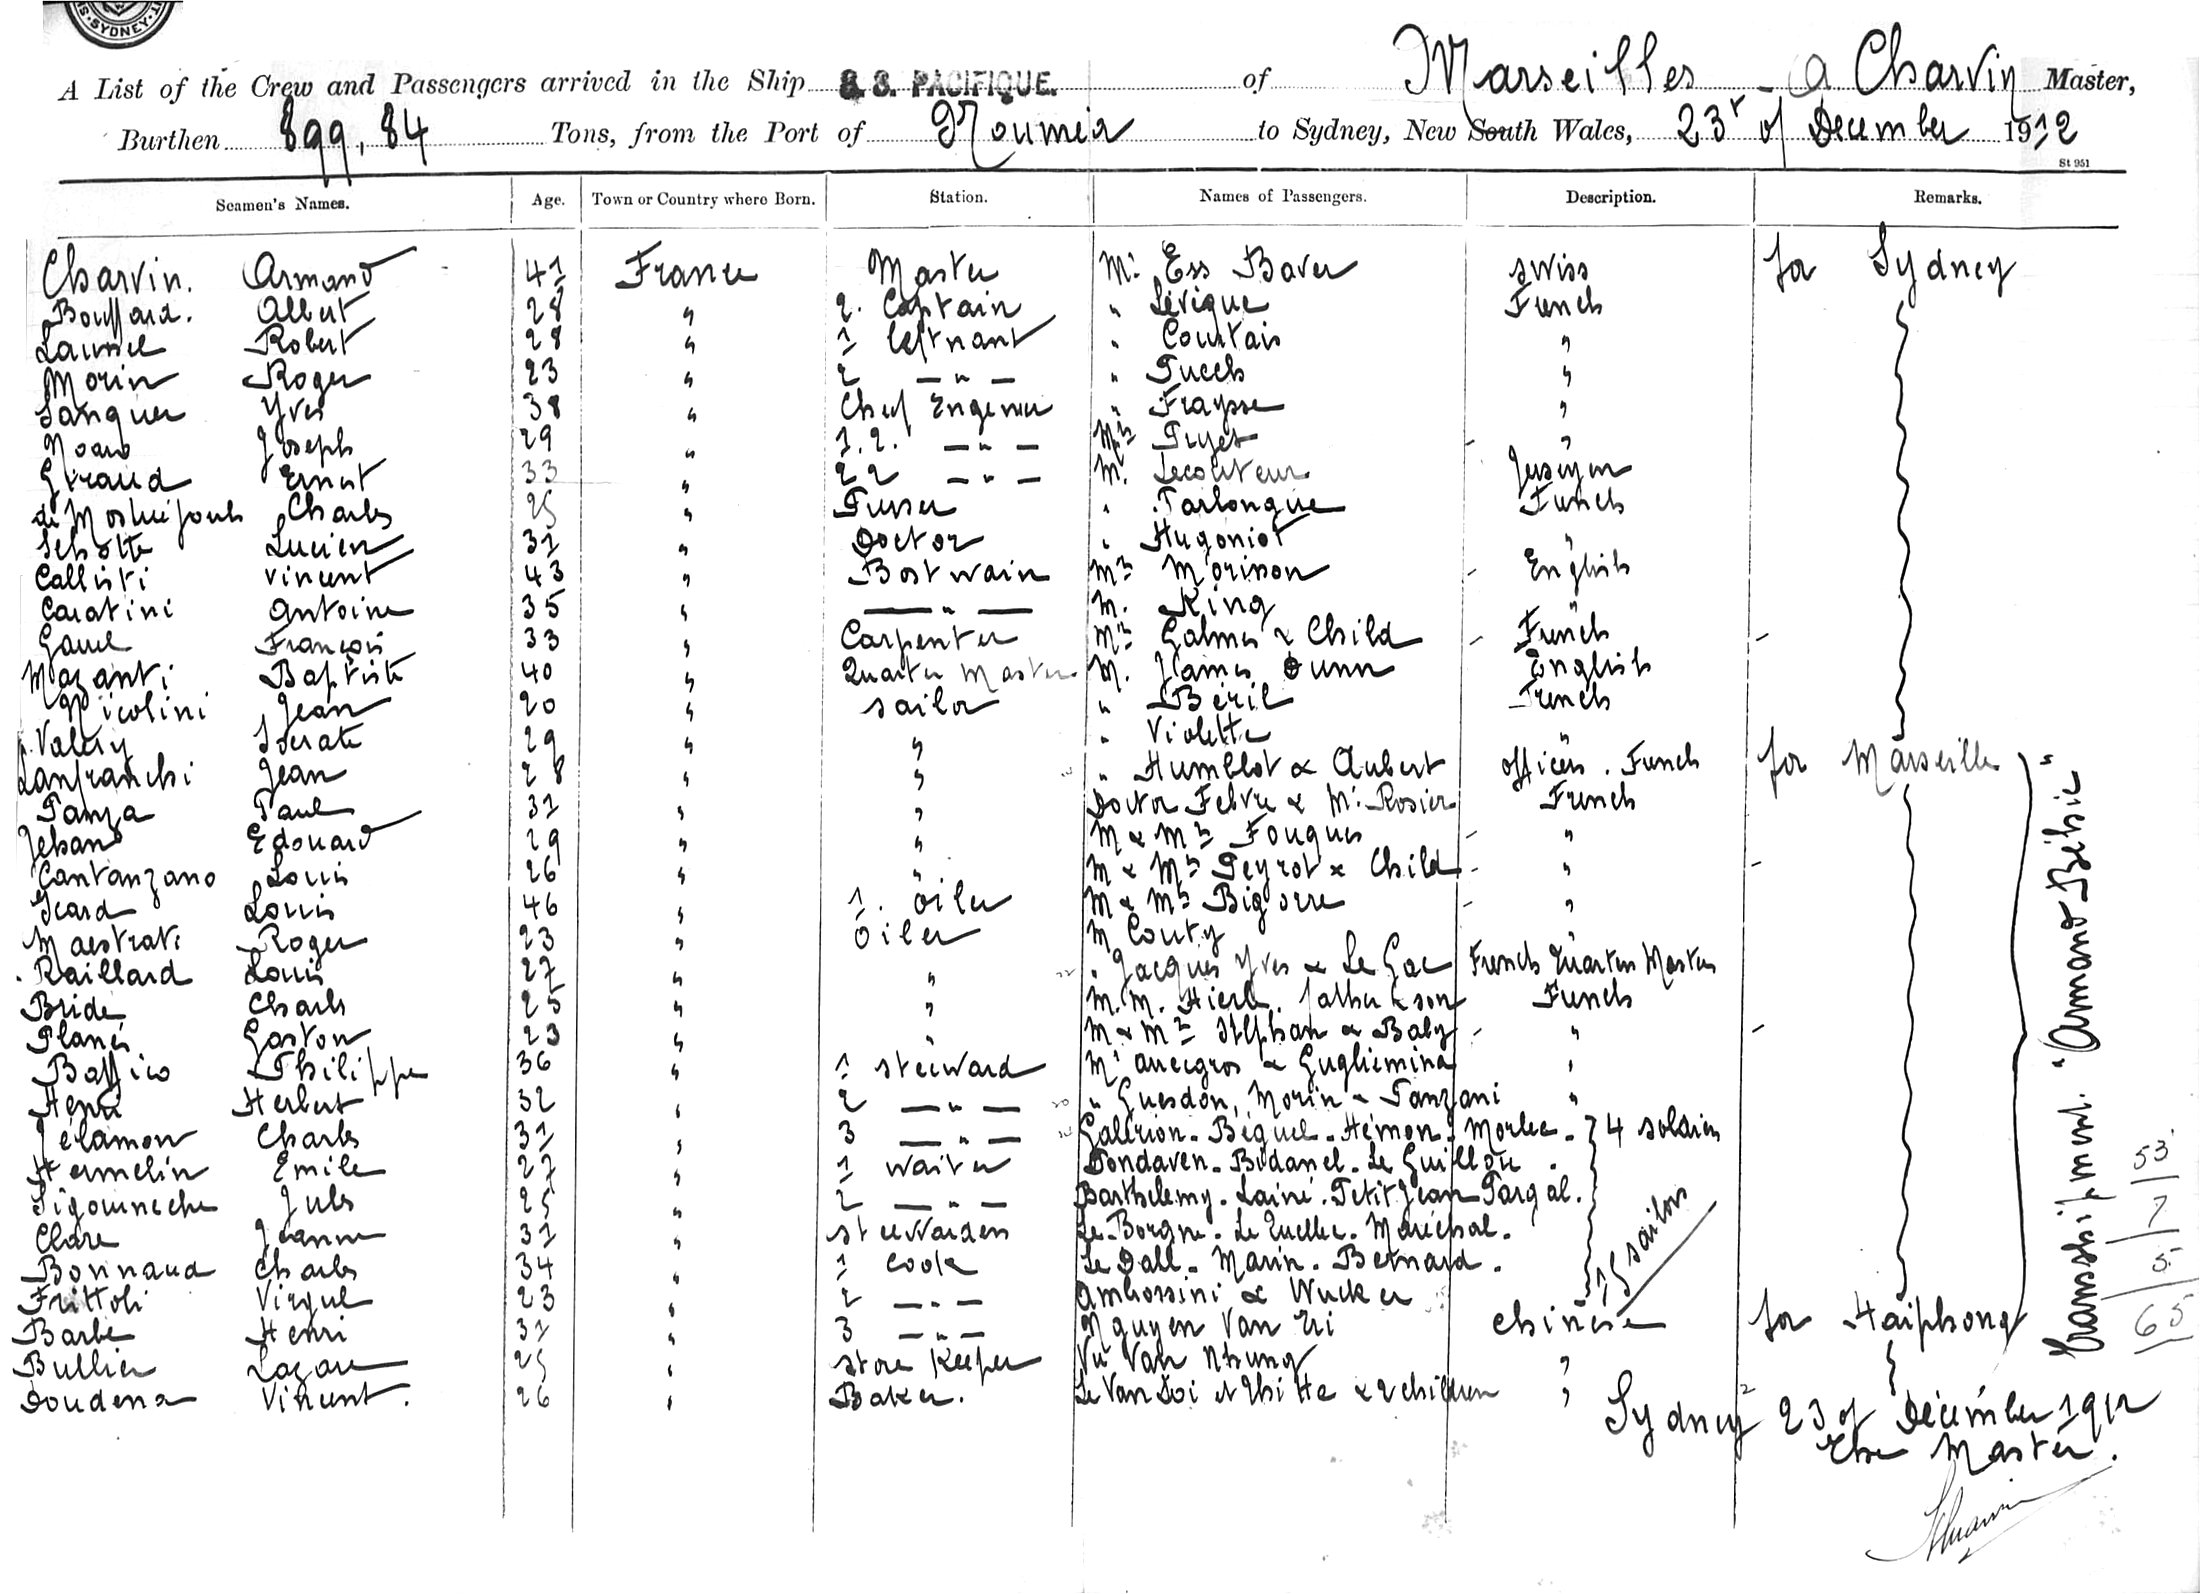 SYDNEY
A List of the Crew and Passengers arrived in the Ship S.S. PACIFIQUE. of Marseilles - A Charvin Master,
Burthen 899,84 Tons, from the Port of Noumea to Sydney, New South Wales, 23r of December 1912
St 951
Seamen's Names. Age. Town or Country where Born. Station. Names of Passengers. Description. Remarks.
Charvin. Armand 41 France Master Mr Ess Baver swiss for Sydney
Bouffard. Albert 28 " 2. Captain " Lévique French
Robert 28 " 1 leftnant " Courtais "
Morin Roger 23 " 2 — " — " Puech "
Sanquer Yves 38 " Chef Engenier " Fraysse "
Noard Joseph 29 " 1.2. — " — Mrs "
Giraud Ernest 33 " 2 2 — " — M. Lecouteur
Charles 25 " Purser " Tarlongue French
Schotte Lucien 31 " Doctor " Hugoniot "
Callisti Vincent 43 " Bostwain Mrs Morison English
Caratini Antoine 35 " — " — M. King "
François 33 " Carpenter Mrs Galmes & Child French
Mazanti Baptiste 40 " Quarter Master M. James Dunn English
Nicolini Jean 20 " sailor " Béril French
Valéry Socrate 29 " " " Violette "
Lanfranchi Jean 28 " " " Humblot & Aubert officers. French for Marseille
Panza Paul 31 " " Doctor Febvre & Mr Rosier French
Jehano Edouard 29 " " M & Mrs Fouques "
Cantanzano Louis 26 " " M & Mrs Peyrot & Child "
Icard Louis 46 " 1. oiler M & Mrs Bigorre "
Maestrati Roger 23 " oiler M Couty "
Raillard Louis 27 " " " Jacques Yves & Le Gac French Quarter Masters
Bride Charles 25 " " M.M. Hierle. father & son French
Planes Gaston 23 " " M & Mrs Stéphan & Baby "
Baffico Philippe 36 " 1 steeward Mr Ancegros & Gugliemina "
Henri Herbert 32 " 2 — " — " Guesdon, Morin & Panzani "
Jélamon Charles 31 " 3 — " — Gallerion - Béguel - Hémon - Morlec - 4 soldiers
Hermelin Emile 27 " 1 waiter Dondaven - Bodanel - Le Guillou.
Jules 25 " 2 — " — Barthelemy. Lainé. Petitjean Pargal.
Clare Jeanne 31 " steewarden Le Borgne. Le Quellec. Maréchal.
Bonnaud Charles 34 " 1 cook Le Dall - Marin. Bernard.
15 sailors
Frittoli Virgul 23 " 2 — " — Ambrossini & Wucker
Barbe Henri 31 " 3 — " — Nguyen Van Tri chinese for Haiphong
Bullier Lazare 25 " store Keeper Vu Van Nhung "
Doudena Vincent. 26 " Baker. Le Van Loi et Thi He & 2 children "
Transshipment. "Armand Béhic"
53
7
5
65
Sydney 23 of December 1912
The Master.